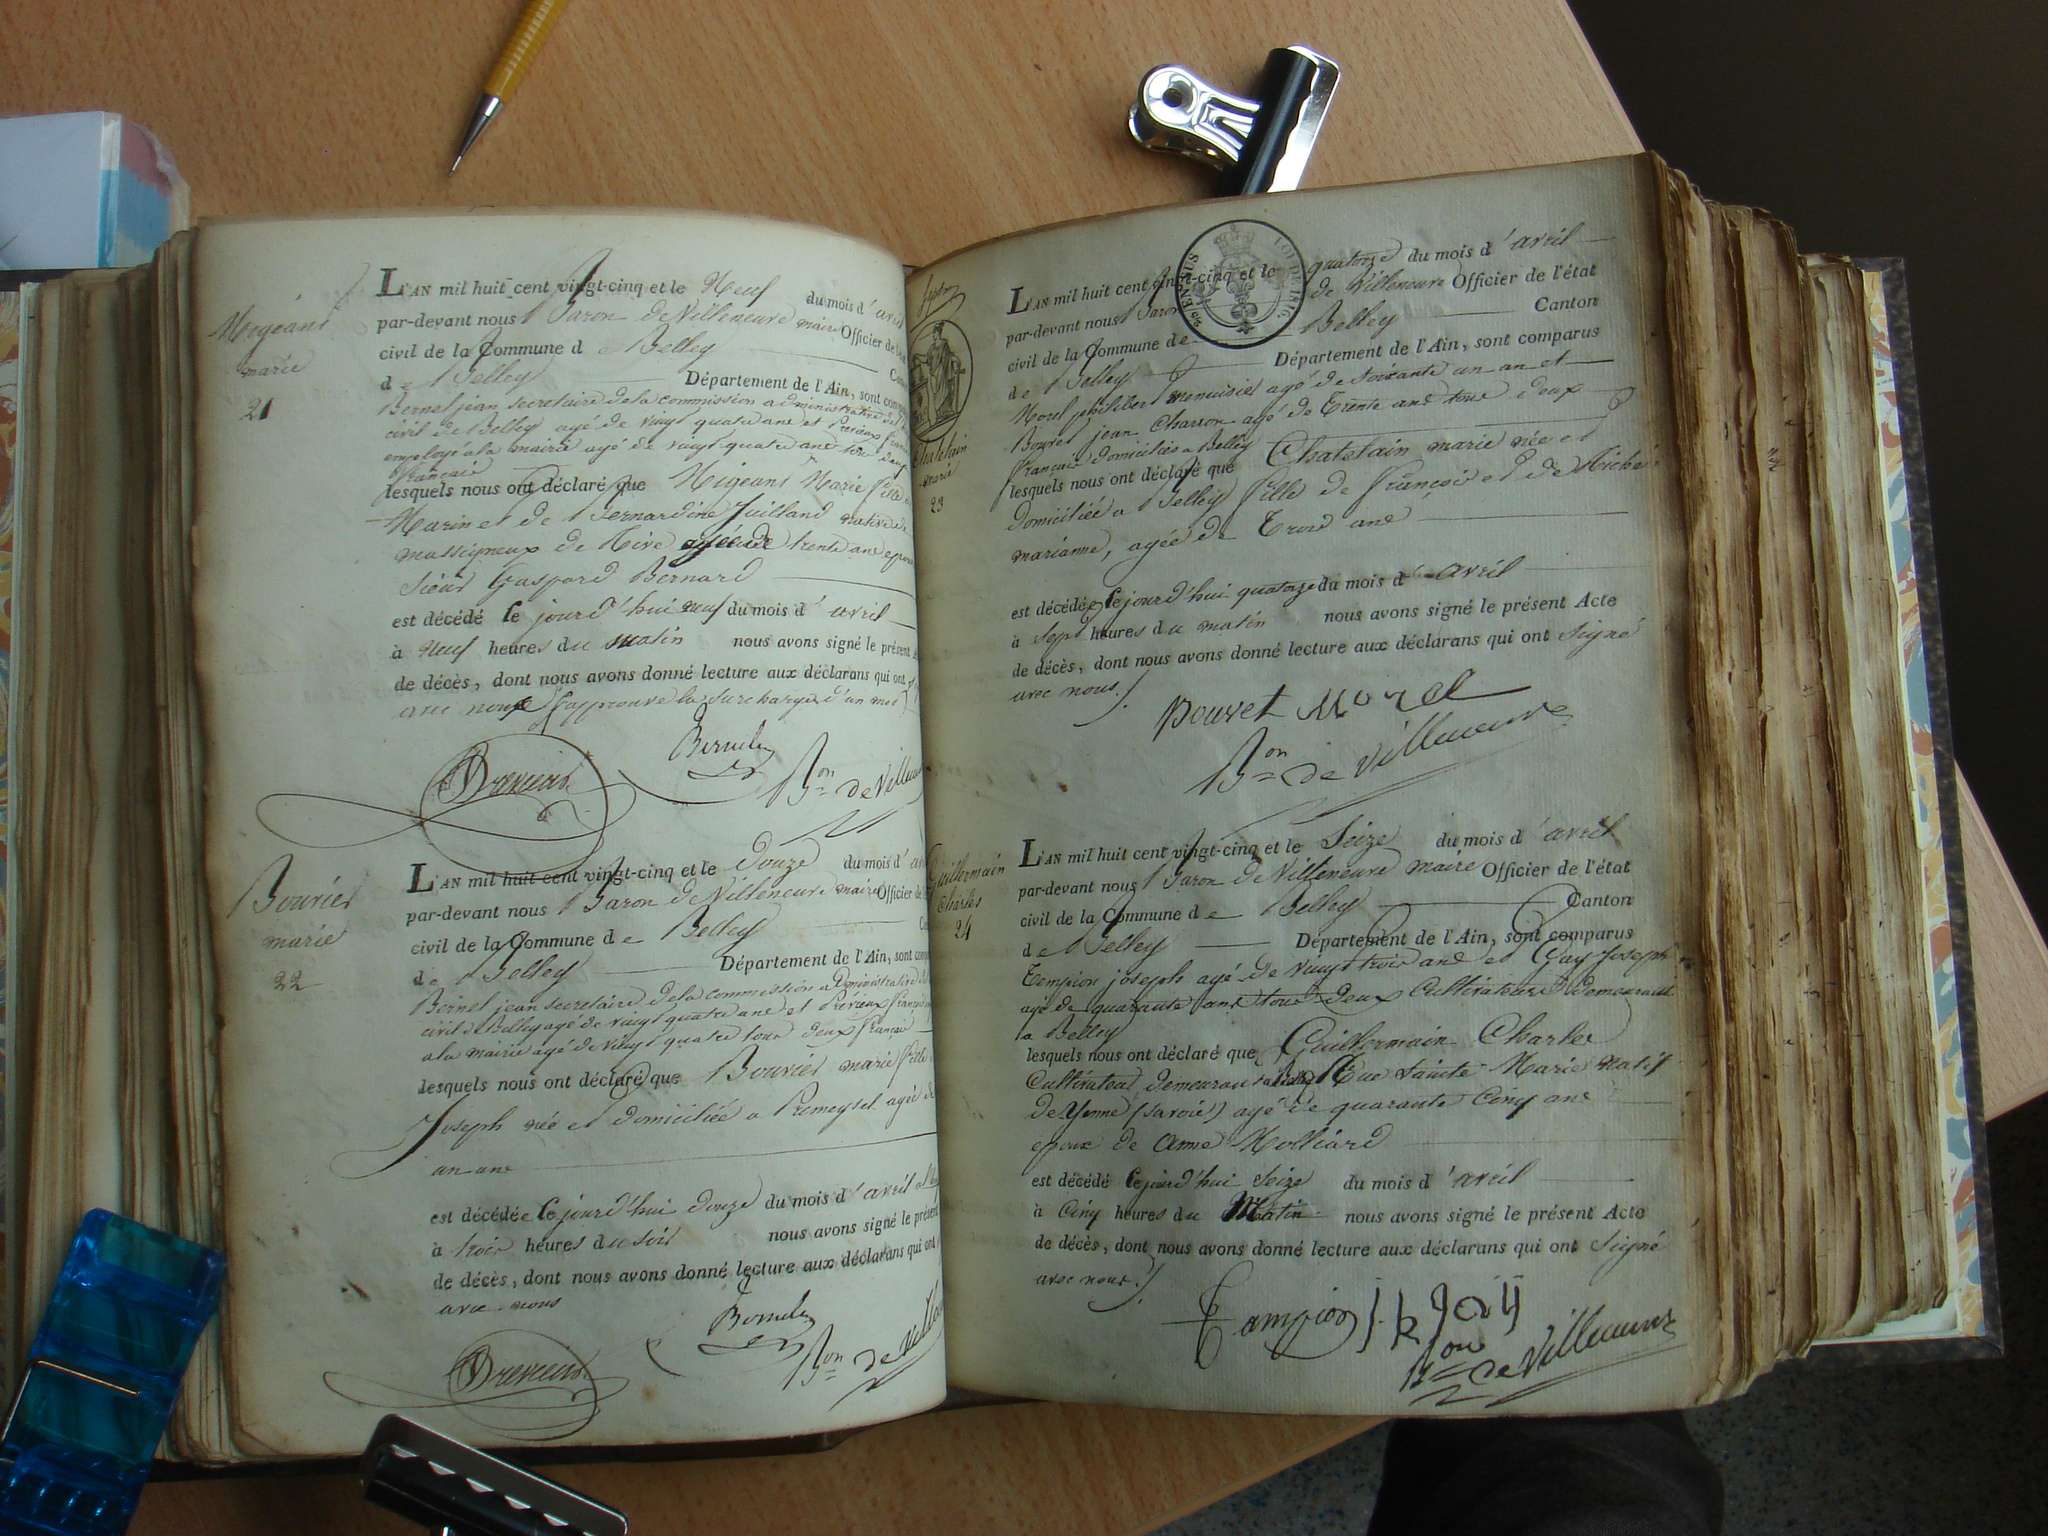 Migeant
marie
21
L'AN mil huit cent vingt-cinq et le Neuf du mois d'avril
par-devant nous Baron de Villeneuve maire Officier de l'état
civil de la Commune de Belley
de Belley Département de l'Ain, sont
Bernel jean secretaire de la commission administrative
civil de Belley agé de vingt quatre ans et
employé a la mairie agé de vingt quatre ans tous deux
français
lesquels nous ont déclaré que Migeant Marie fille
Marin et de Bernardine Juilland native de
massigneux de Rive agée de trente ans
Sieur Gaspard Bernard
est décédé le jourd'hui neuf du mois d'avril
à Neuf heures du matin nous avons signé le présent
de décès, dont nous avons donné lecture aux déclarans qui ont
avec nous J'approuve la surcharge d'un mot
Bon de Villeneuve
Bouvier
marie
22
L'AN mil huit cent vingt-cinq et le Douze du mois d'
par-devant nous Baron de Villeneuve maire Officier de
civil de la Commune de Belley
de Belley Département de l'Ain, sont
Bernel jean secretaire de la commission administrative
civil de Belley agé de vingt quatre ans et français
a la mairie agé de vingt quatre tous deux français
lesquels nous ont déclaré que Bouvier marie fille
Joseph née et domiciliée a Premeysel agée de
un ans
est décédée le jourd'hui douze du mois d'avril
à trois heures du soir nous avons signé le présent
de décès, dont nous avons donné lecture aux déclarans qui ont
avec nous
Bon de
Sept
Chatelain
marie
23
L'AN mil huit cent vingt-cinq et le quatorze du mois d'avril
par-devant nous Baron de Villeneuve Officier de l'état
civil de la Commune de Belley Canton
de Belley Département de l'Ain, sont comparus
Morel philibert menuisier agé de soixante un an et
Bouvet jean Charron agé de Trente ans tous deux
français domiciliés a Belley
lesquels nous ont déclaré que Chatelain marie née et
domiciliée a Belley fille de françois et de
marianne, agée de Trois ans
est décédée le jourd'hui quatorze du mois d'avril
à sept heures du matin nous avons signé le présent Acte
de décès, dont nous avons donné lecture aux déclarans qui ont signé
avec nous
Bouvet Morel
Bon de Villeneuve
Guillermain
Charles
24
L'AN mil huit cent vingt-cinq et le Seize du mois d'avril
par-devant nous Baron de Villeneuve maire Officier de l'état
civil de la Commune de Belley Canton
de Belley Département de l'Ain, sont comparus
Tempion joseph agé de vingt trois ans et Guy Joseph
agé de quarante ans tous deux Cultivateurs demeurant
a Belley
lesquels nous ont déclaré que Guillermain Charles
Cultivateur demeurant a Belley Rue Sainte Marie natif
de Yenne (Savoie) agé de quarante Cinq ans
epoux de Anne Molliard
est décédé le jourd'hui Seize du mois d'avril
à Cinq heures du Matin nous avons signé le présent Acte
de décès, dont nous avons donné lecture aux déclarans qui ont signé
avec nous
Bon de Villeneuve